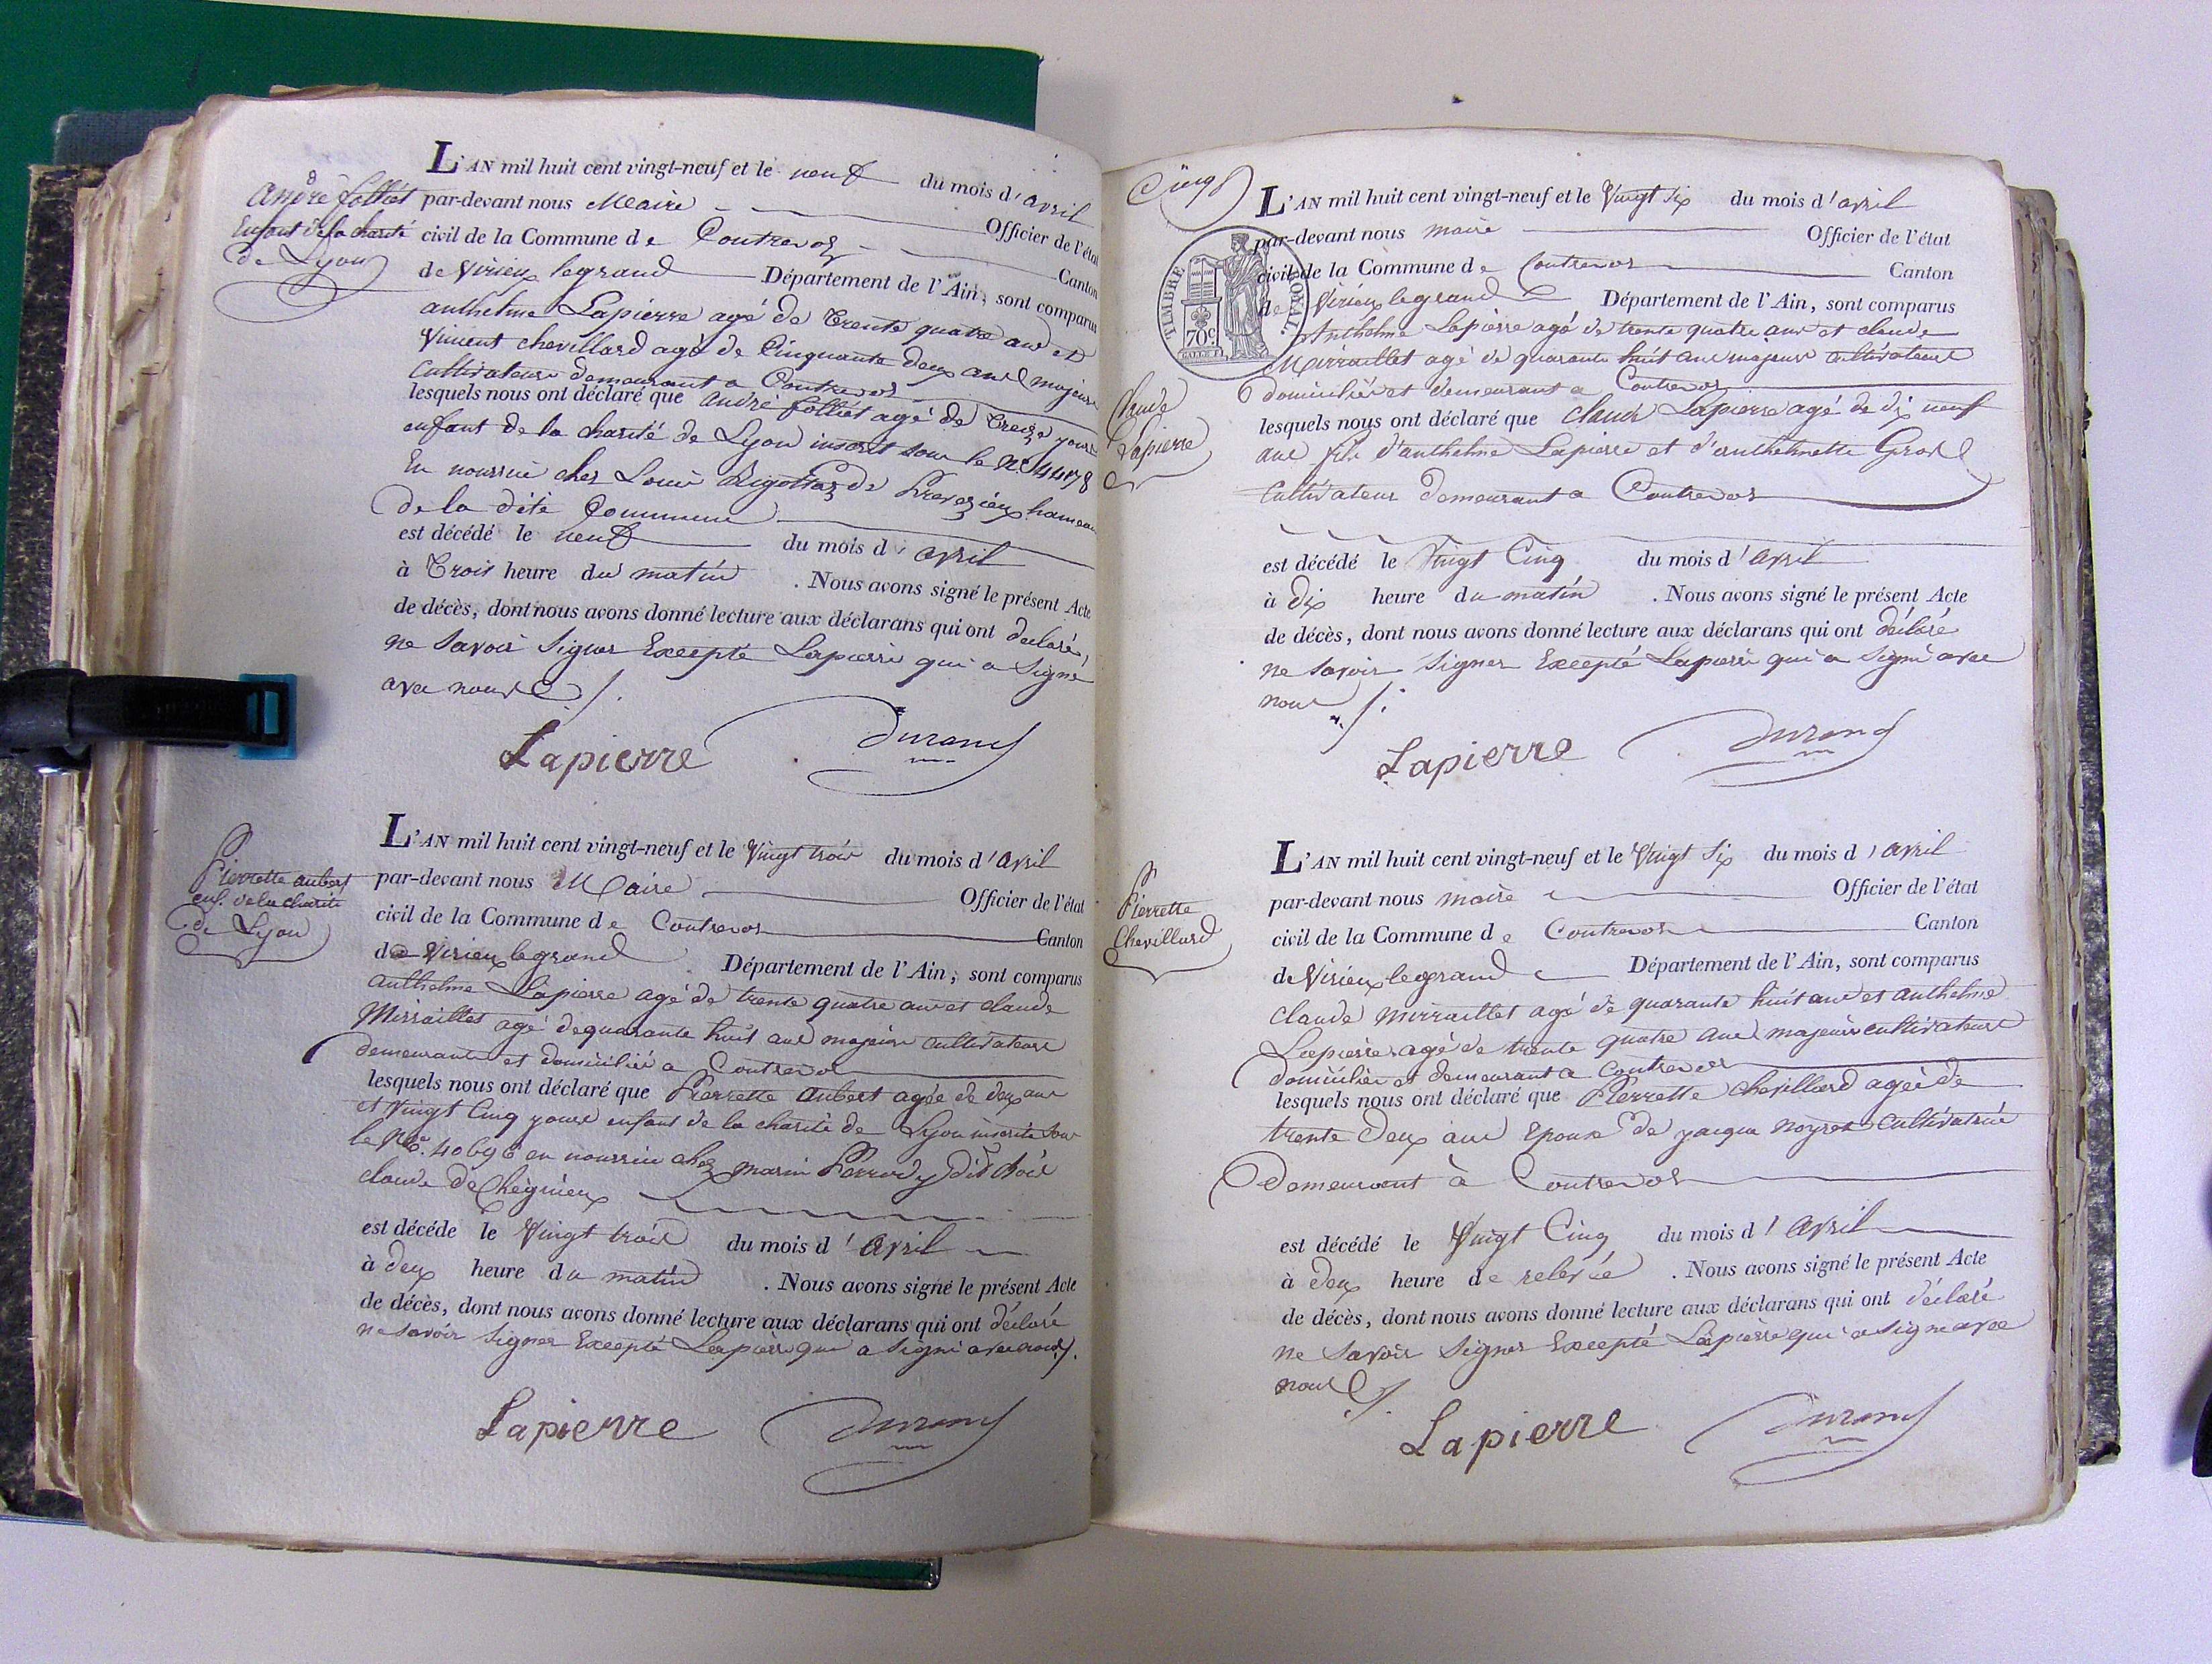 8
André folliet
Enfant de la charité
de Lyon
L'AN mil huit cent vingt-neuf et le neuf du mois d'avril
par-devant nous Maire Officier de l'état
civil de la Commune de Contrevoz Canton
de Virieu legrand Département de l'Ain, sont comparus
anthelme Lapierre agé de trente quatre ans et
Vincent chevillard agé de Cinquante deux ans majeurs
Cultivateurs demeurant a Contrevoz
lesquels nous ont déclaré que andré folliet agé de treize jours
enfant de la charité de Lyon inscrit sous le No 44178
En nourrice chez Louis Rigottaz de Preveyzieux hameau
de la dite Commune
est décédé le neuf du mois d'avril
à Trois heure du matin . Nous avons signé le présent Acte
de décès, dont nous avons donné lecture aux déclarans qui ont déclaré,
ne savoir signer Excepté Lapierre qui a signé
avec nous ./.
Lapierre Durand
Pierrette aubert
enf. de la charité
de Lyon
L'AN mil huit cent vingt-neuf et le Vingt trois du mois d'avril
par-devant nous Maire Officier de l'état
civil de la Commune de Contrevoz Canton
de Virieu legrand Département de l'Ain, sont comparus
anthelme Lapierre agé de trente quatre ans et claude
Mirraillet agé de quarante huit ans majeurs cultivateurs
demeurant et domicilié a Contrevoz
lesquels nous ont déclaré que Pierrette aubert agée de deux ans
et Vingt Cinq jours enfant de la charité de Lyon inscrite sous
le No. 40696 en nourrice chez marin Perrody dit
claude de Chegnieux
est décéde le Vingt trois du mois d'avril
à deux heure du matin . Nous avons signé le présent Acte
de décès, dont nous avons donné lecture aux déclarans qui ont déclaré
ne savoir signer Excepté Lapierre qui a signé avec nous ./.
Lapierre Durand
Cinq
TIMBRE ROYAL.
70c.
Claude
Lapierre
L'AN mil huit cent vingt-neuf et le Vingt Six du mois d'avril
par-devant nous maire Officier de l'état
civil de la Commune de Contrevoz Canton
de Virieu legrand Département de l'Ain, sont comparus
Anthelme Lapierre agé de trente quatre ans et claude
Mirraillet agé de quarante huit ans majeurs cultivateurs
domiciliés et demeurant a Contrevoz
lesquels nous ont déclaré que claude Lapierre agé de dix neuf
ans fils d'anthelme Lapierre et d'anthelmette Gros
Cultivateur demeurant a Contrevoz
est décédé le Vingt Cinq du mois d'avril
à dix heure du matin . Nous avons signé le présent Acte
de décès, dont nous avons donné lecture aux déclarans qui ont déclaré
ne savoir signer Excepté Lapierre qui a signé avec
nous ./.
Lapierre Durand
Pierrette
Chevillard
L'AN mil huit cent vingt-neuf et le Vingt Six du mois d'avril
par-devant nous maire Officier de l'état
civil de la Commune de Contrevoz Canton
de Virieu legrand Département de l'Ain, sont comparus
claude mirraillet agé de quarante huit ans et anthelme
Lapierre agé de trente quatre ans majeurs cultivateurs
domiciliés et demeurant a Contrevoz
lesquels nous ont déclaré que Pierrette chevillard agée de
trente Deux ans Epouse de jacque noyret Cultivatrice
Demeurant à Contrevoz
est décédé le Vingt Cinq du mois d'avril
à deux heure de relevée . Nous avons signé le présent Acte
de décès, dont nous avons donné lecture aux déclarans qui ont déclaré
ne savoir signer Excepté Lapierre qui a signé avec
nous ./.
Lapierre Durand